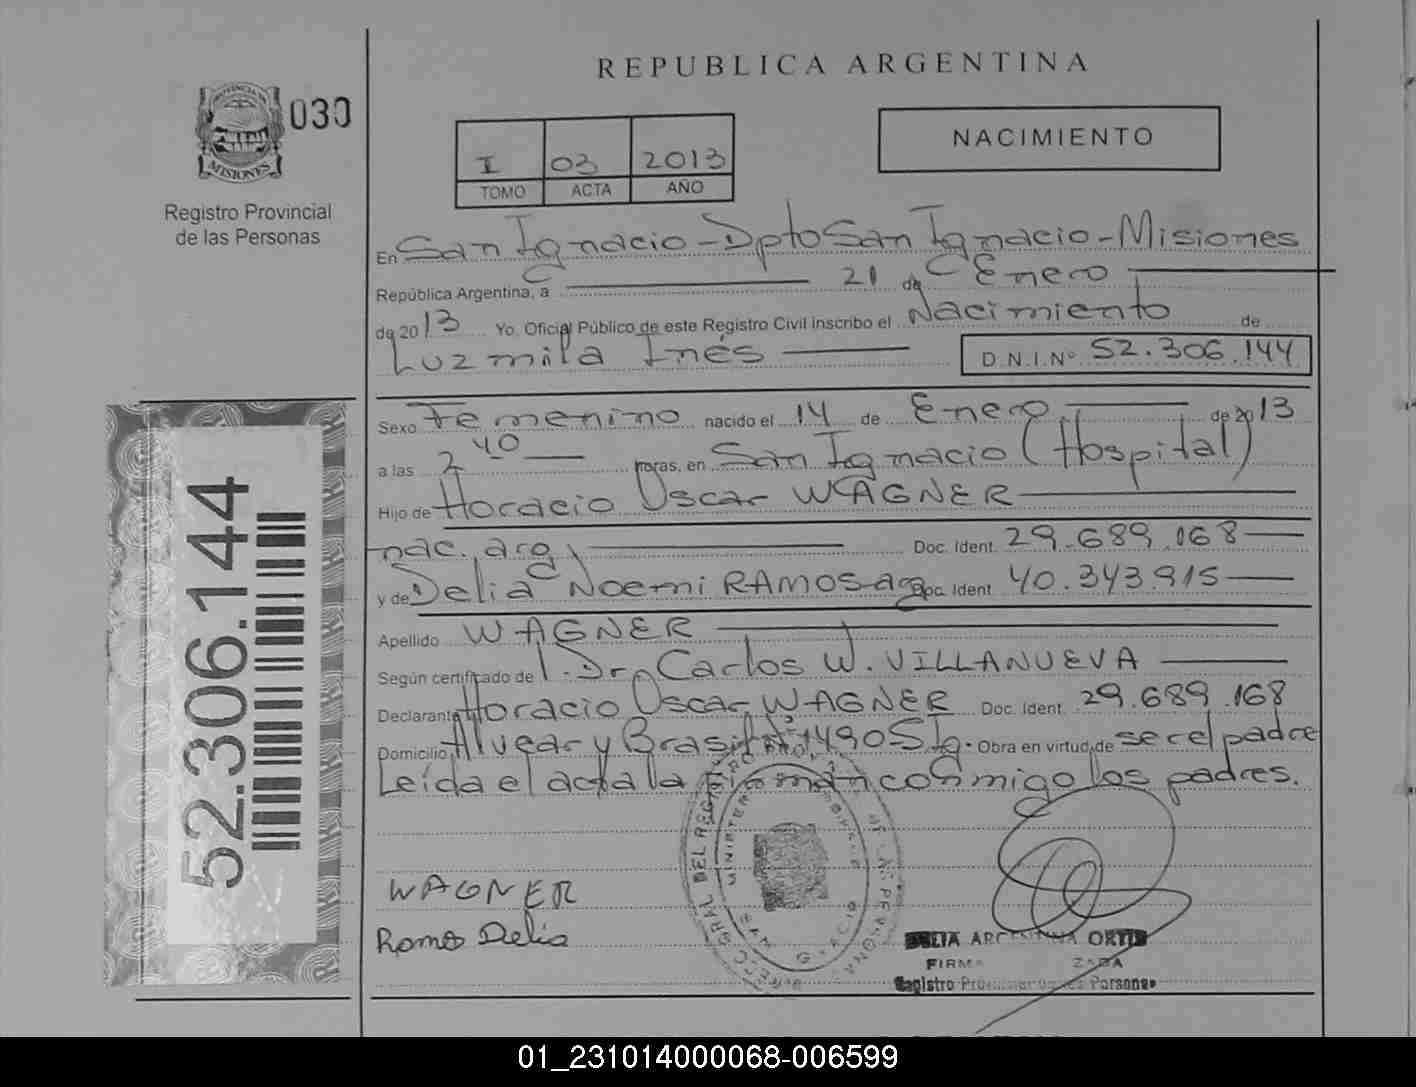 REPUBLICA ARGENTINA
PROVINCIA DE
MISIONES
030
Registro Provincial
de las Personas
I 03 2013
TOMO ACTA AÑO
NACIMIENTO
En San Ignacio - Dpto San Ignacio - Misiones
República Argentina, a 21 de Enero
de 2013 Yo, Oficial Público de este Registro Civil Inscribo el Nacimiento de
Luzmila Inés D.N.I.Nº 52.306.144
Sexo Femenino nacido el 14 de Enero de 2013
a las 2 40 horas, en San Ignacio (Hospital)
Hijo de Horacio Oscar WAGNER
nac. arg. Doc. Ident. 29.689.168
y de Delia Noemi RAMOS arg Doc. Ident. 40.343.915
Apellido WAGNER
Según certificado de l. Dr. Carlos W. VILLANUEVA
Declarante Horacio Oscar WAGNER Doc. Ident. 29.689.168
Domicilio Alvear y Brasil Nº 1490 S Ig. Obra en virtud de se el padre
Leída el acta la firman conmigo los padres.
WAGNER
Ramos Delia
DELIA ARGENTINA ORTIZ
Registro Provincial de las Personas
52.306.144
01_231014000068-006599